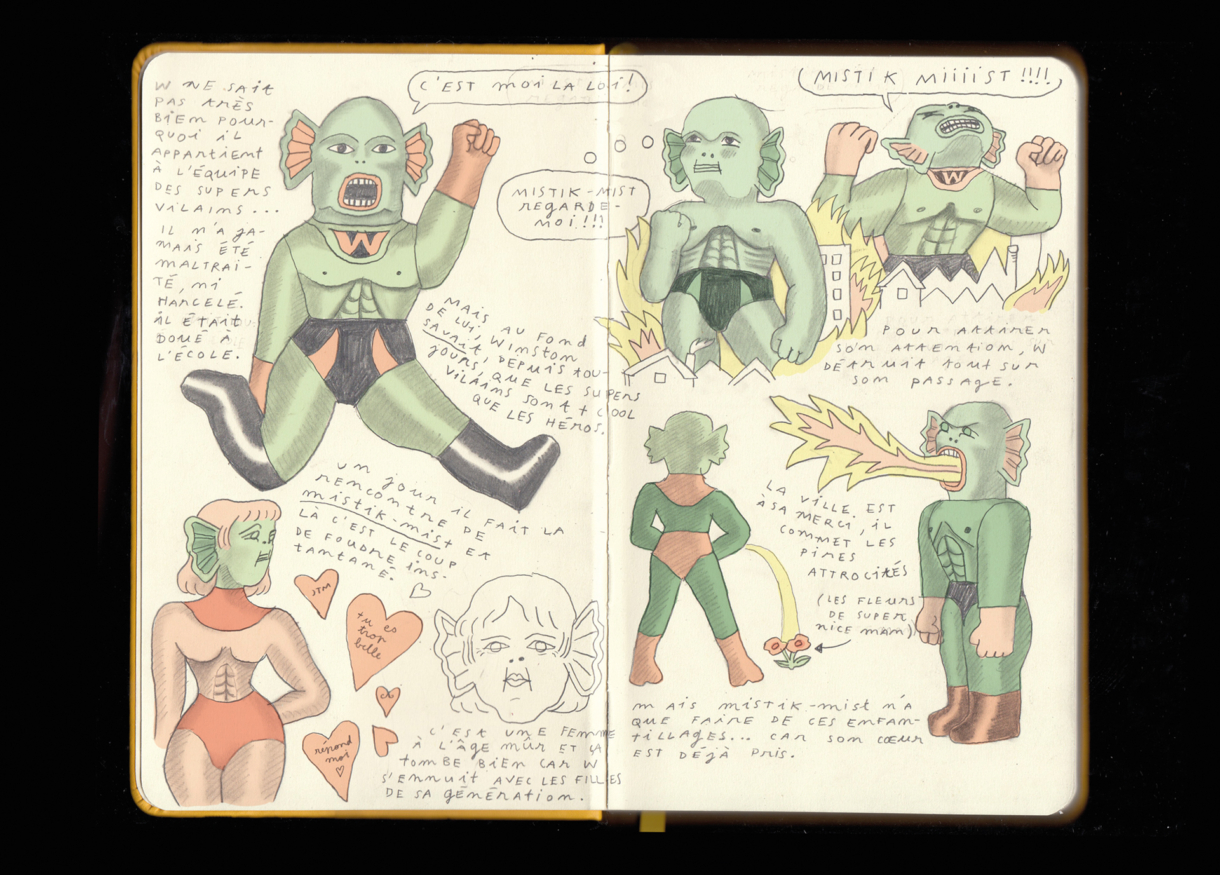 W NE SAit
PAS tRÈS
BiEN POUR-
QUOi iL
APPARtiENt
À L'ÉQUiPE
DES SUPERS
ViLAiNS...
iL N'A JA-
MAiS ÉtÉ
MALtRAi-
tÉ, Ni
HARCELÉ.
iL ÉtAit
DOUÉ À
L'ÉCOLE.
C'ESt MOi LA LOi!
W
MAiS AU FOND
DE LUi, WiNStON
SAVAit, DEPUiS tOU-
JOURS, QUE LES SUPERS
ViLAiNS SONt + COOL
QUE LES HÉROS.
UN JOUR iL FAit LA
RENCONtRE DE
MiStiK-MiSt Et
LÀ C'ESt LE COUP
DE FOUDRE iNS-
tANtANÉ.
JTM
tu es
trop
belle
répond
moi
C'ESt UNE FEMME
À L'ÂGE MÛR Et ÇA
tOMBE BiEN CAR W
S'ENNUit AVEC LES FiLLES
DE SA GÉNÉRAtiON.
MiStiK-MiSt
REGARDE-
MOi!!!
MiSti K MiiiiST !!!!
W
POUR AttiRER
SON AttENtiON, W
DÉtRUit tOUt SUR
SON PASSAGE.
LA ViLLE EST
À SA MERCi, iL
COMMET LES
PiRES
ATTROCitÉS
(LES FLEURS
DE SUPER
NiCE MAN)
MAiS MiStiK-MiSt N'A
QUE FAiRE DE CES ENFAN-
tiLLAGES... CAR SON CŒUR
EST DÉJÀ PRiS.